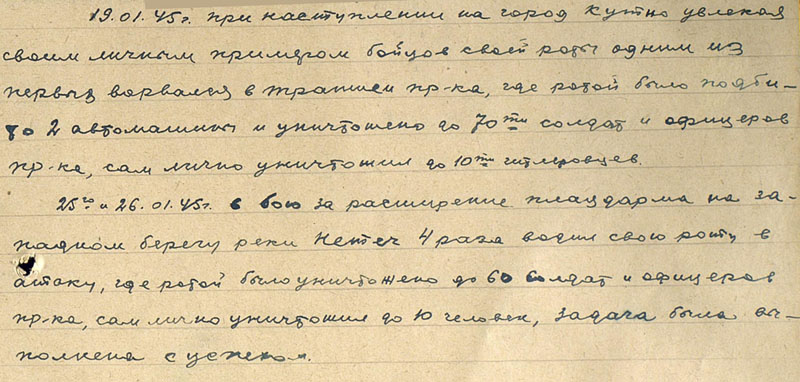 19.01.45г. при наступлении на город Кутно увлекая
своим личным примером бойцов своей роты одним из
первых ворвался в траншеи пр-ка, где ротой было подби-
то 2 автомашины и уничтожено до 70ти солдат и офицеров
пр-ка, сам лично уничтожил до 10ти гитлеровцев.
25го и 26.01.45г. в бою за расширение плацдарма на за-
падном берегу реки Нетеч 4 раза водил свою роту в
атаку, где ротой было уничтожено до 60 солдат и офицеров
пр-ка, сам лично уничтожил до 10 человек, задача была вы-
полнена с успехом.